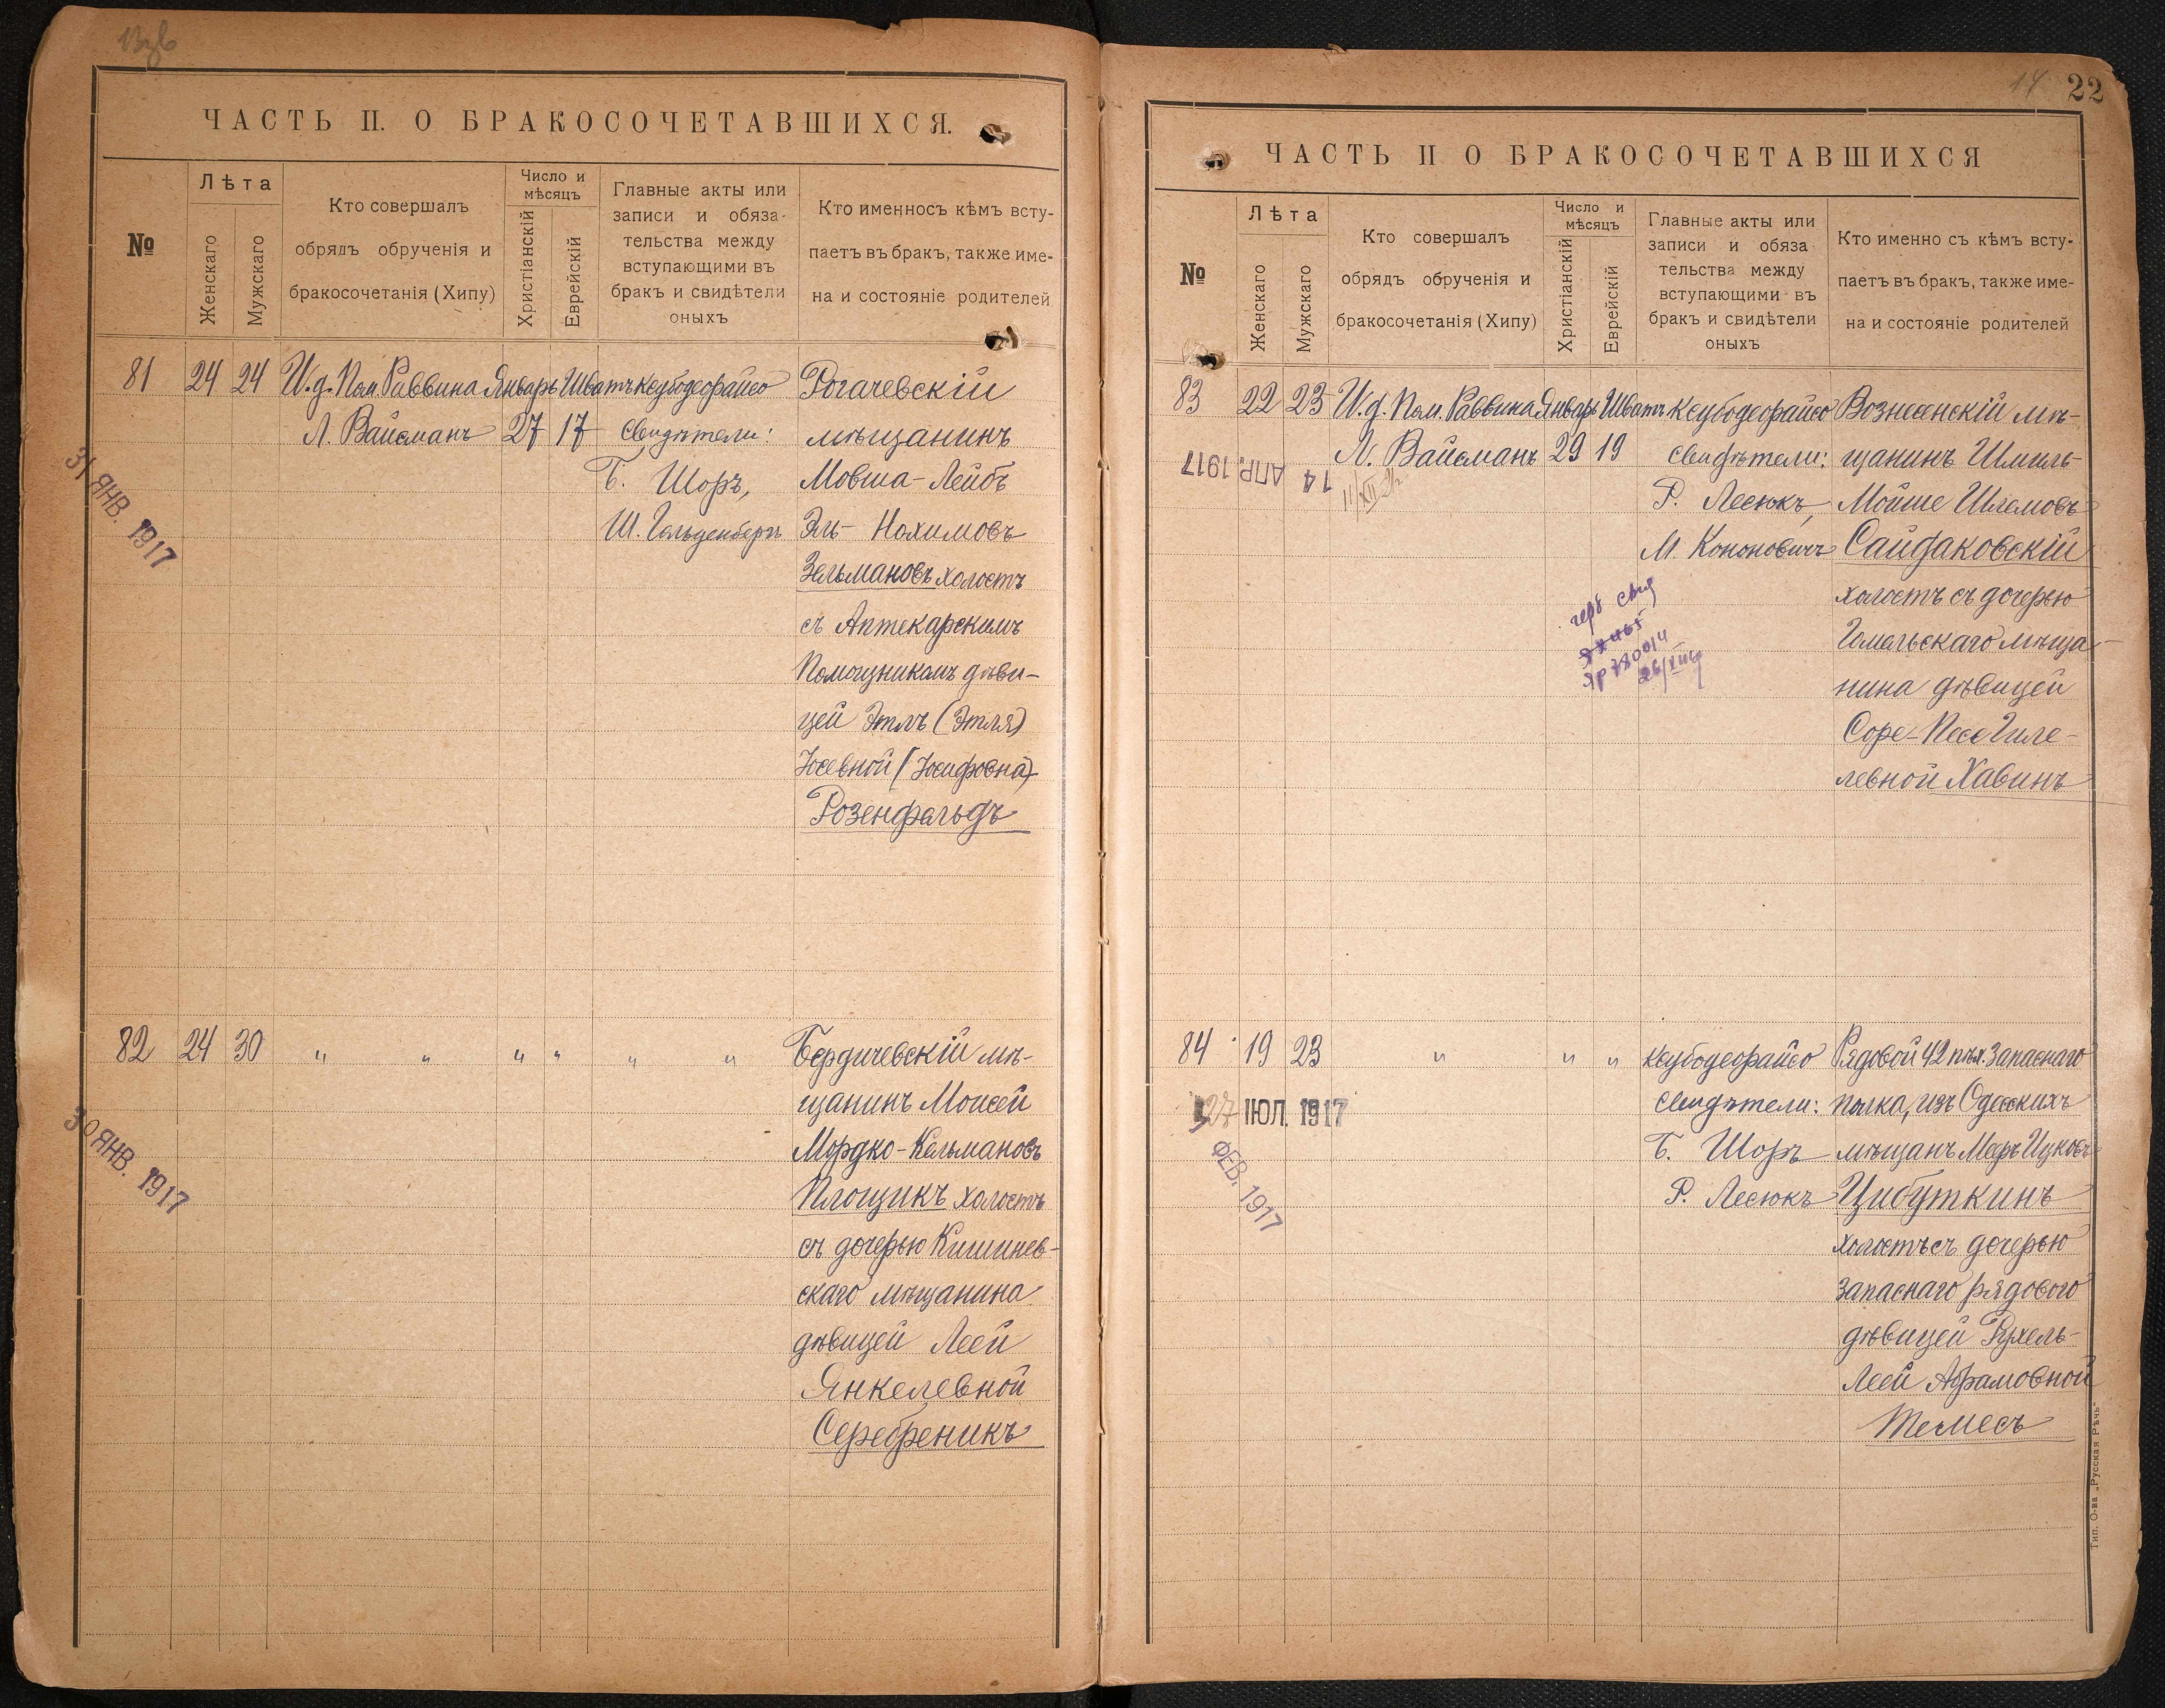 ЧАСТЬ II. О БРАКОСОЧЕТАВШИХСЯ.
№
Лѣта
Женскаго
Мужскаго
Кто совершалъ
обрядъ обрученія и
бракосочетанія (Хипу)
Число и
мѣсяцъ
Христіанскій
Еврейскій
Главные акты или
записи и обяза-
тельства между
вступающими въ
бракъ и свидѣтели
оныхъ
Кто именносъ кѣмъ всту-
паетъ въ бракъ, также име-
на и состояніе родителей
81 24 24
И.д. Пом. Раввина
Л. Вайсманъ
Январь
27
Шватъ
17
Ксубодеорайсо
Свидѣтели:
Б. Шоръ,
Ш. Гольденбергъ
Рогачевскій
мѣщанинъ
Мовша-Лейбъ
Эль- Нохимовъ
Зельмановъ холостъ
съ Аптекарскимъ
Помощникомъ дѣви-
цей Этль (Этля)
Іосевной (Іосифовна)
Розенфельдъ
31 ЯНВ. 1917
82 24 30
" " " " " "
Бердичевскій мѣ-
щанинъ Моисей
Мордко-Кельмановъ
Площикъ холостъ
съ дочерью Кишинев-
скаго мѣщанина
дѣвицей Леей
Янкелевной
Серебреникъ
30 ЯНВ. 1917
14 22
ЧАСТЬ II О БРАКОСОЧЕТАВШИХСЯ
№
Лѣта
Женскаго
Мужскаго
Кто совершалъ
обрядъ обрученія и
бракосочетанія (Хипу)
Число и
мѣсяцъ
Христіанскій
Еврейскій
Главные акты или
записи и обяза
тельства между
вступающими въ
бракъ и свидѣтели
оныхъ
Кто именно съ кѣмъ всту-
паетъ въ бракъ, также име-
на и состояніе родителей
83 22 23
И.д. Пом. Раввина
Л. Вайсманъ
Январь
29
Шватъ
19
Ксубодеорайсо
Свидѣтели:
Р. Лесюкъ,
М. Кононовичъ
Вознесенскій мѣ-
щанинъ Шмиль-
Мойше Шлемовъ
Сайдаковскій
холостъ съ дочерью
Гомельскаго мѣща-
нина дѣвицей
Соре-Песе Гиле-
левной Хавинъ
14 АПР. 1917
84 19 23
" " "
Ксубодеорайсо
Свидѣтели:
Б. Шоръ
Р. Лесюкъ
Рядовой 42 пѣх. Запаснаго
полка, изъ Одесскихъ
мѣщанъ Меръ Ицковъ
Цибуткинъ
холостъ съ дочерью
Запаснаго рядового
дѣвицей Рухель-
Леей Абрамовной
Темесъ
27 ІЮЛ. 1917
ФЕВ. 1917
Тип. О-ва „Русская Рѣчь"